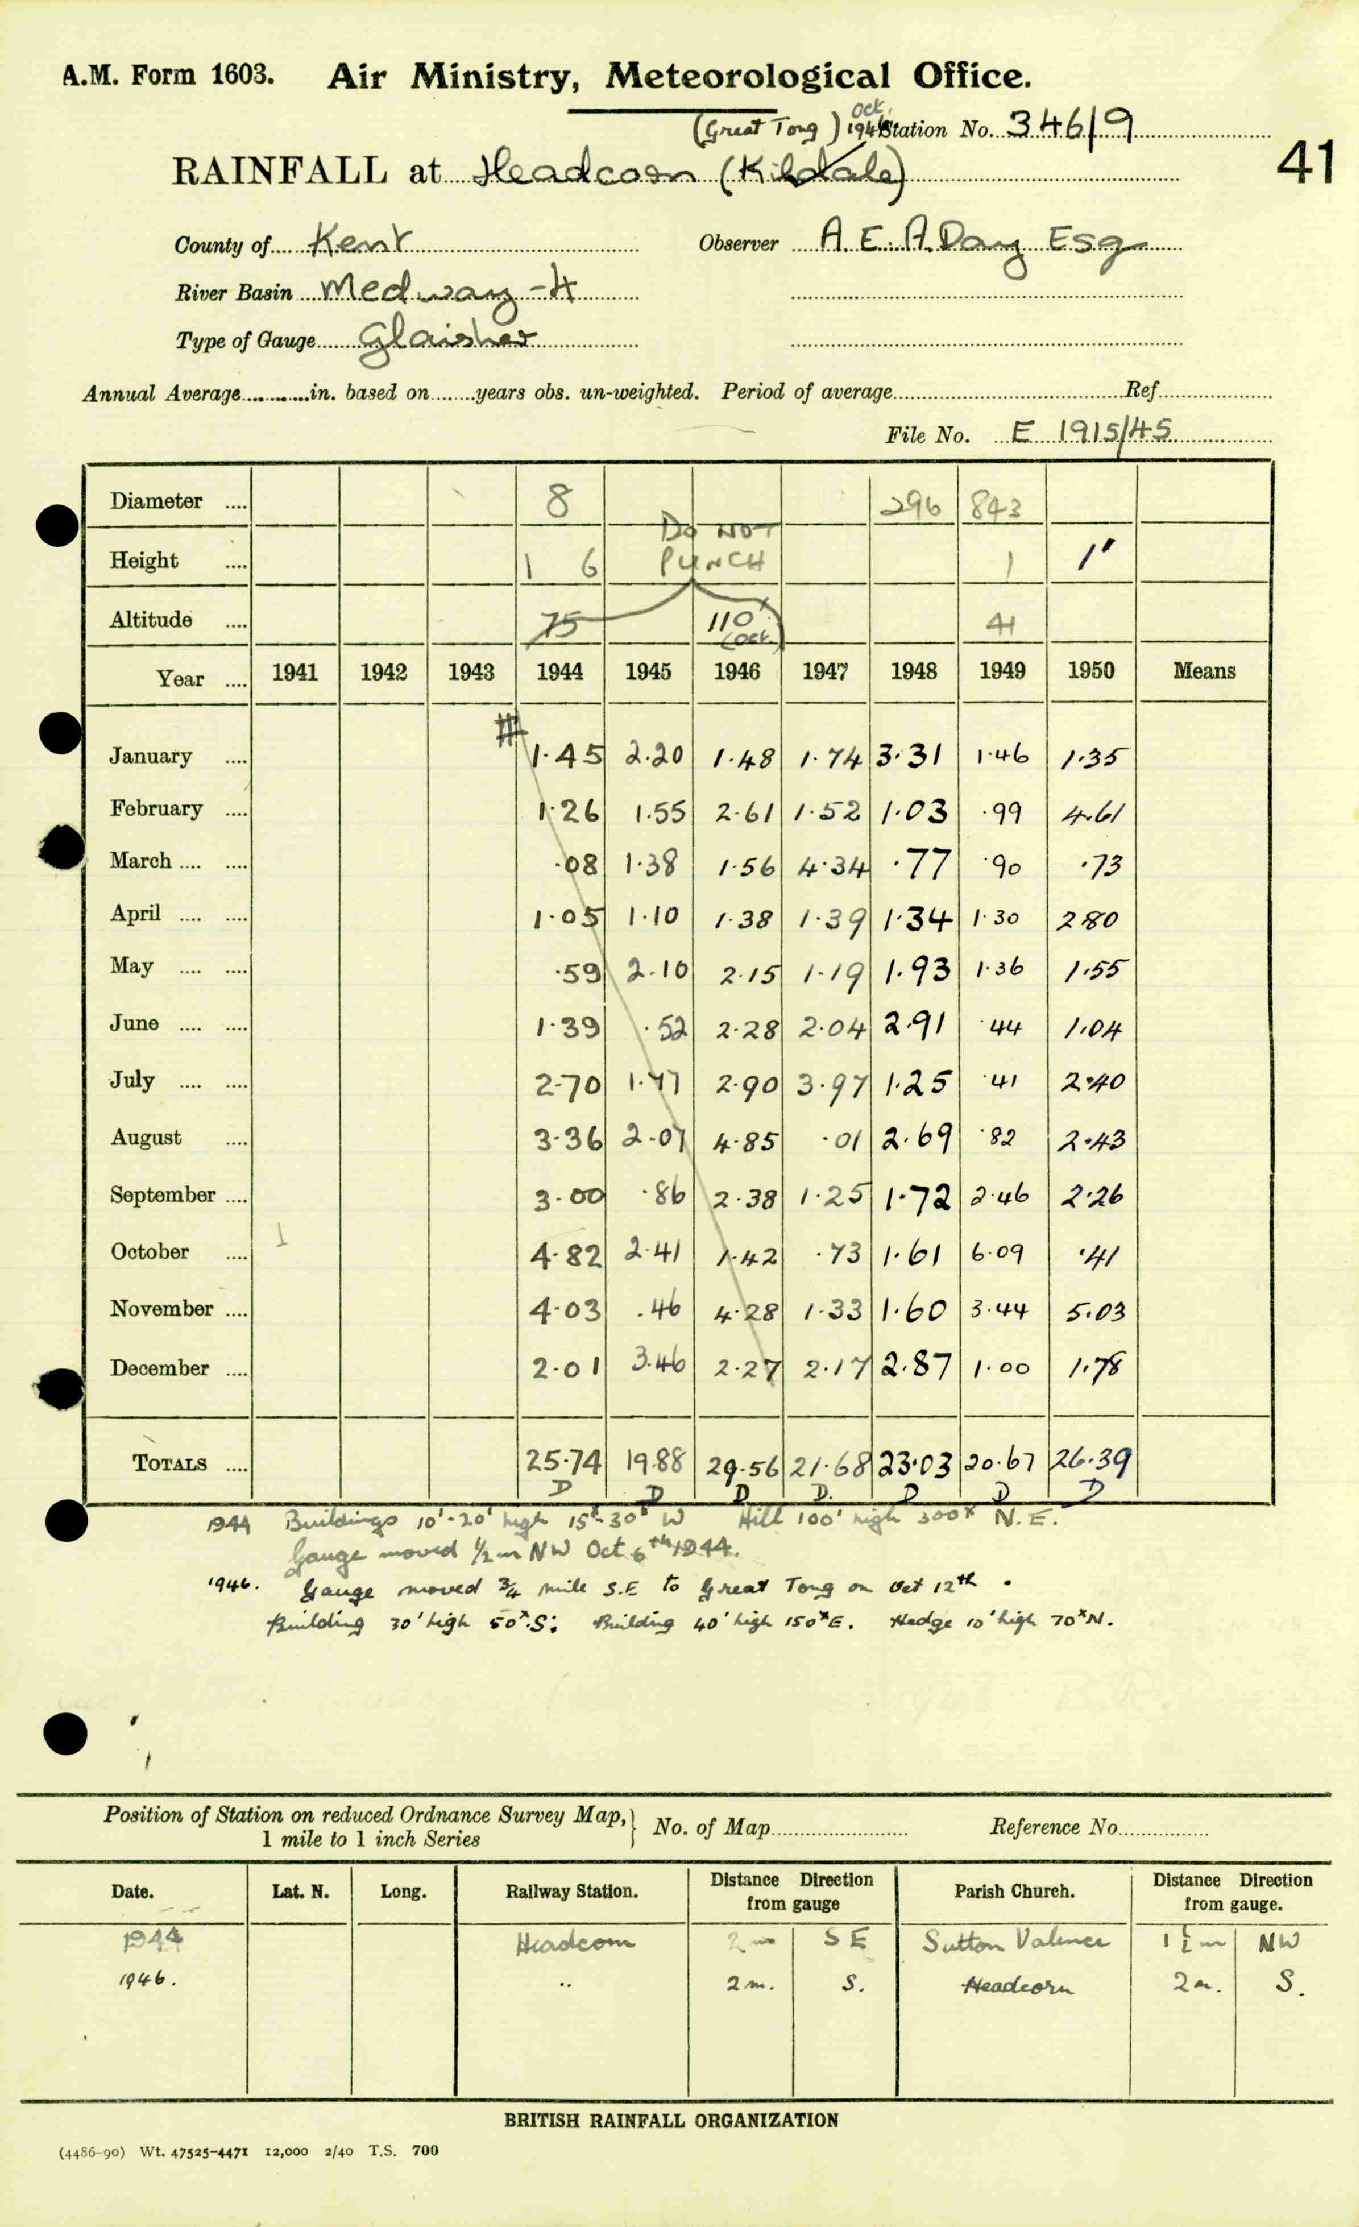 A.M. Form 1603. Air Ministry, Meteorological Office.
(Great Tong) Oct. 1946 Station No. 346/9
41
RAINFALL at Headcorn (Kildale)
County of Kent Observer A. E. A. Day Esq
River Basin Medway - 4
Type of Gauge Glaisher
Annual Average in. based on years obs. un-weighted. Period of average Ref
File No. E 1915/45
Diameter .... 8 296 843
DO NOT PUNCH
Height .... 1 6 1 1'
Altitude .... 75 110' (Oct.) 41
Year .... 1941 1942 1943 1944 1945 1946 1947 1948 1949 1950 Means
#
January .... 1.45 2.20 1.48 1.74 3.31 1.46 1.35
February .... 1.26 1.55 2.61 1.52 1.03 .99 4.61
March .... .... .08 1.38 1.56 4.34 .77 .90 .73
April .... .... 1.05 1.10 1.38 1.39 1.34 1.30 2.80
May .... .... .59 2.10 2.15 1.19 1.93 1.36 1.55
June .... .... 1.39 .52 2.28 2.04 2.91 .44 1.04
July .... .... 2.70 1.77 2.90 3.97 1.25 .41 2.40
August .... 3.36 2.07 4.85 .01 2.69 .82 2.43
September .... 3.00 .86 2.38 1.25 1.72 2.46 2.26
October .... 1 4.82 2.41 1.42 .73 1.61 6.09 .41
November .... 4.03 .46 4.28 1.33 1.60 3.44 5.03
December .... 2.01 3.46 2.27 2.17 2.87 1.00 1.78
TOTALS .... 25.74 19.88 29.56 21.68 23.03 20.67 26.39
D D D D. D D D
1944 Buildings 10'-20' high 15x-30x W Hill 100' high 300x N.E.
Gauge moved 1/2 m NW Oct 6th 1944.
1946. Gauge moved 3/4 mile S.E to Great Tong on Oct 12th.
Building 30' high 50x S; Building 40' high 150x E. Hedge 10' high 70x N.
Position of Station on reduced Ordnance Survey Map, 1 mile to 1 inch Series } No. of Map Reference No.
Date. Lat. N. Long. Railway Station. Distance Direction from gauge Parish Church. Distance Direction from gauge.
1944 Headcorn 2 m SE Sutton Valence 1 1/2 m NW
1946. .. 2 m. S. Headcorn 2 m. S.
BRITISH RAINFALL ORGANIZATION
(4486-90) Wt. 47525-4471 12,000 2/40 T.S. 700